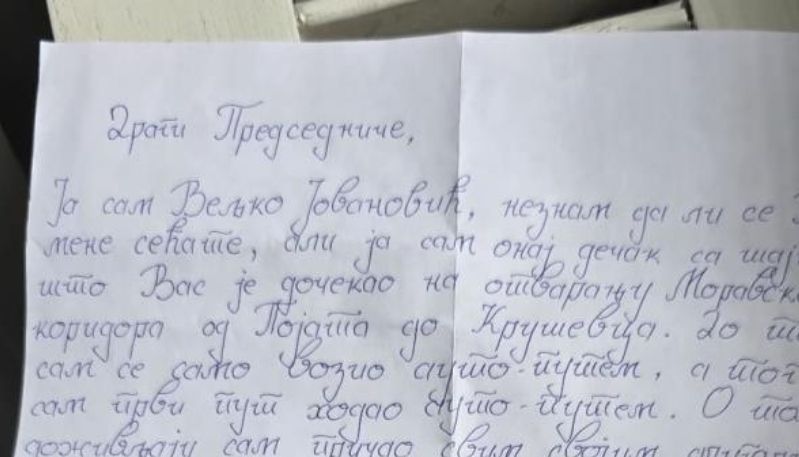 Драги Председниче,
Ја сам Вељко Јовановић, незнам да ли се
мене сећате, али ја сам онај дечак са шај
што Вас је дочекао на отварању Моравск
коридора од Појата до Крушевца. До т
сам се само возио ауто-путем, а тог
сам први пут ходао ауто-путем. О та
доживљају сам причао свим својим